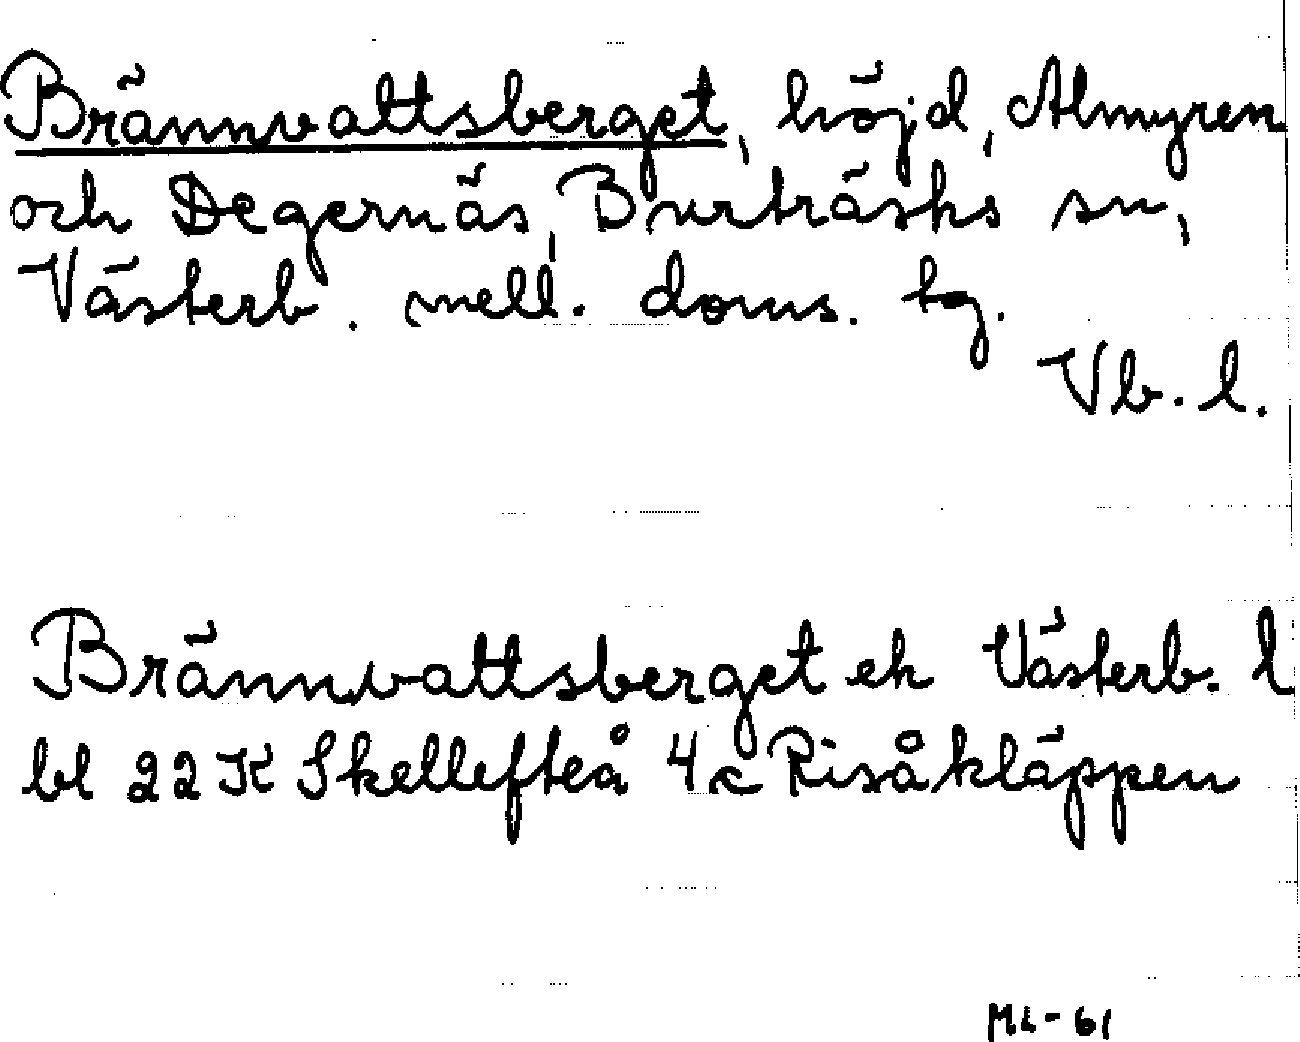 Brännvattsberget, höjd, Almyren
och Degernäs, Burträsks sn,
Västerb. mell. doms. tg.
Vb. l.
Brännvattsberget ek Västerb. l
bl 22 K Skellefteå 4 c Risåkläppen
ML-61